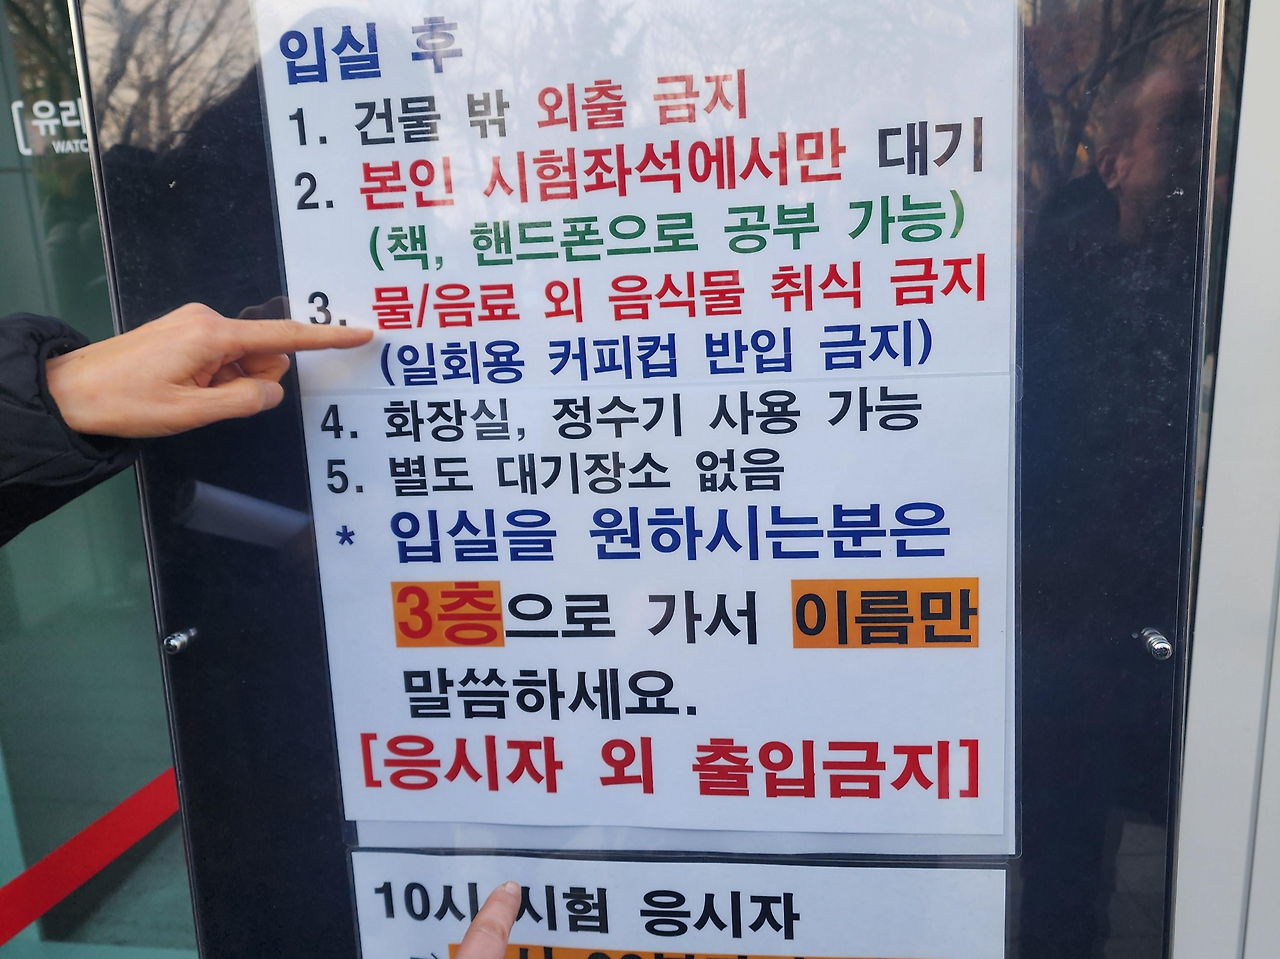 [유리
WATC
입실 후
1. 건물 밖 외출 금지
2. 본인 시험좌석에서만 대기
(책, 핸드폰으로 공부 가능)
3. 물/음료 외 음식물 취식 금지
(일회용 커피컵 반입 금지)
4. 화장실, 정수기 사용 가능
5. 별도 대기장소 없음
* 입실을 원하시는분은
3층으로 가서 이름만
말씀하세요.
[응시자 외 출입금지]
10시 시험 응시자